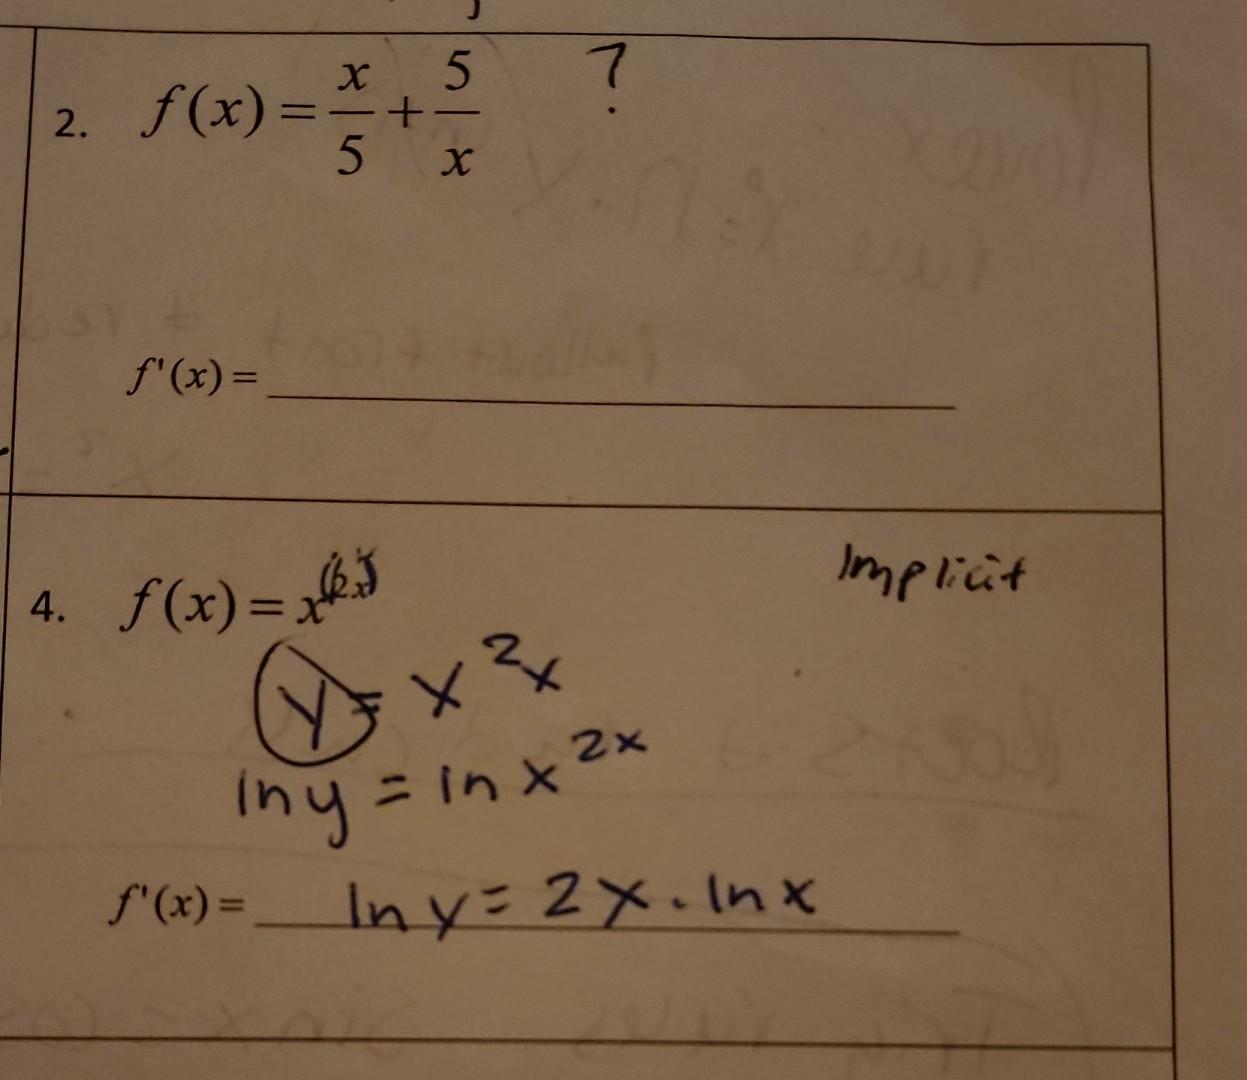 2. f(x) = x/5 + 5/x ?
f'(x) =
4. f(x) = x^(2x) Implicit
y = x^2x
ln y = ln x^2x
f'(x) = ln y = 2x · ln x